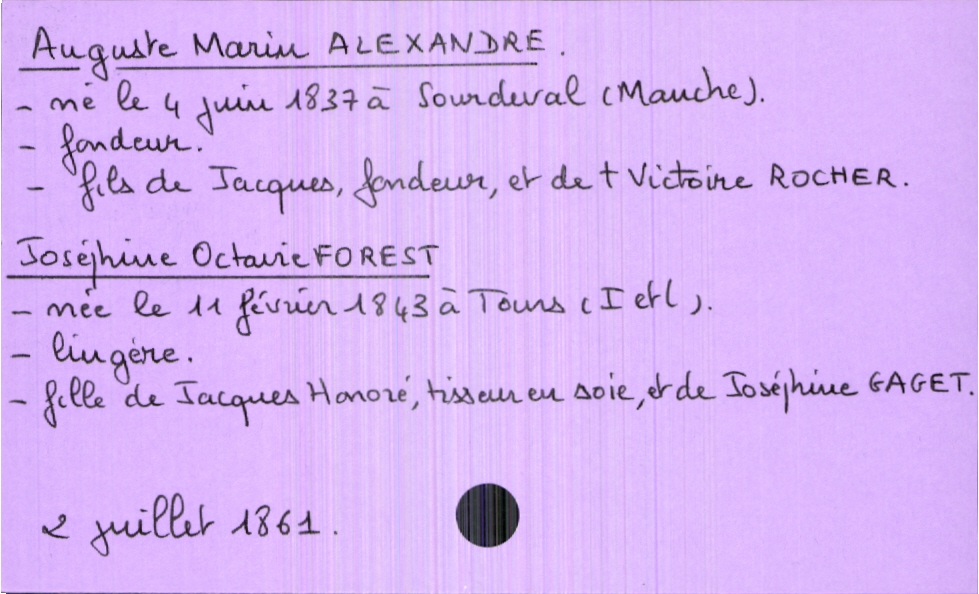 Auguste Marin ALEXANDRE.
- né le 4 juin 1837 à Sourdeval (Manche).
- fondeur.
- fils de Jacques, fondeur, et de † Victoire ROCHER.
Joséphine Octavie FOREST
- née le 11 février 1843 à Tours (I et L).
- lingère.
- fille de Jacques Honoré, tisseur en soie, et de Joséphine GAGET.
2 juillet 1861.